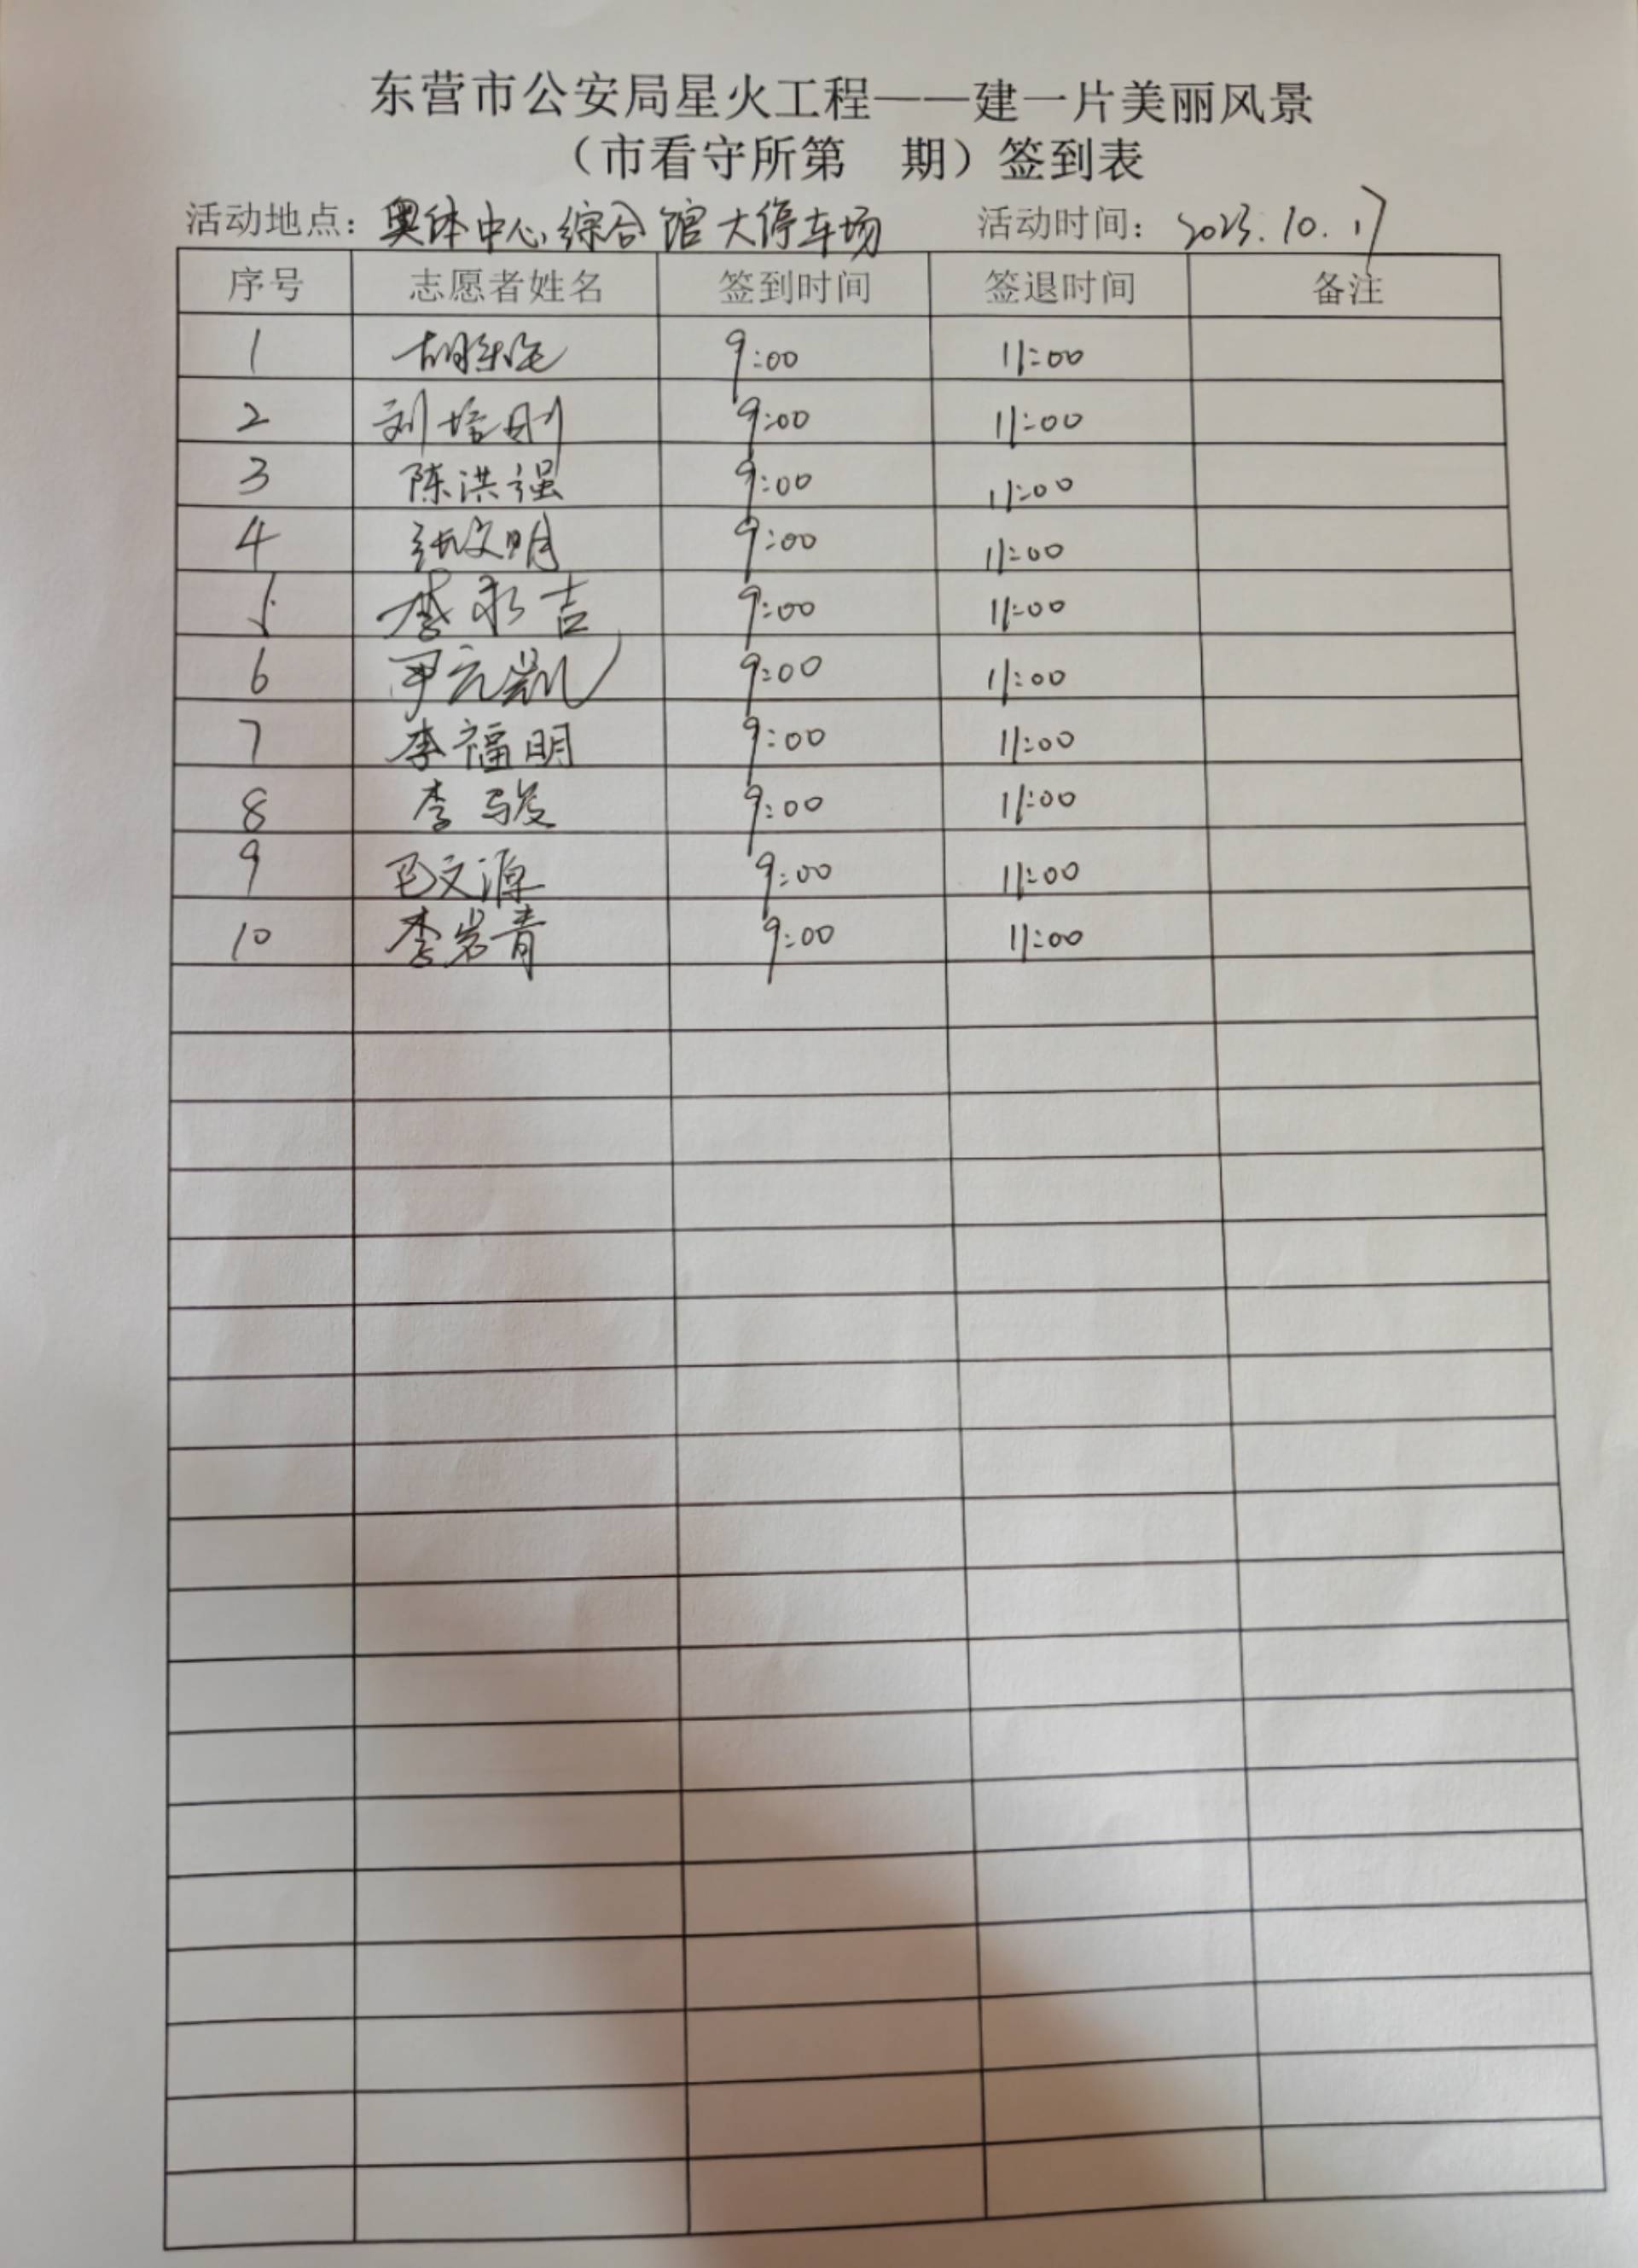 东营市公安局星火工程——建一片美丽风景
（市看守所第 期）签到表
活动地点：奥体中心综合馆大停车场 活动时间：2023.10.17
序号 志愿者姓名 签到时间 签退时间 备注
1 9:00 11:00
2 刘培刚 9:00 11:00
3 陈洪强 9:00 11:00
4 张文明 9:00 11:00
5 李永吉 9:00 11:00
6 尹元凯 9:00 11:00
7 李福明 9:00 11:00
8 李骏 9:00 11:00
9 毛文源 9:00 11:00
10 李岩青 9:00 11:00